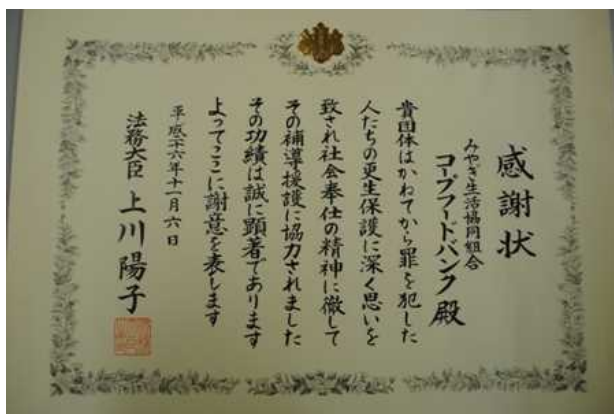 感謝状
みやぎ生活協同組合
コープフードバンク殿
貴団体はかねてから罪を犯した
人たちの更生保護に深く思いを
致され社会奉仕の精神に徹して
その補導援護に協力されました
その功績は誠に顕著であります
よってここに謝意を表します
平成二六年十一月六日
法務大臣 上川陽子